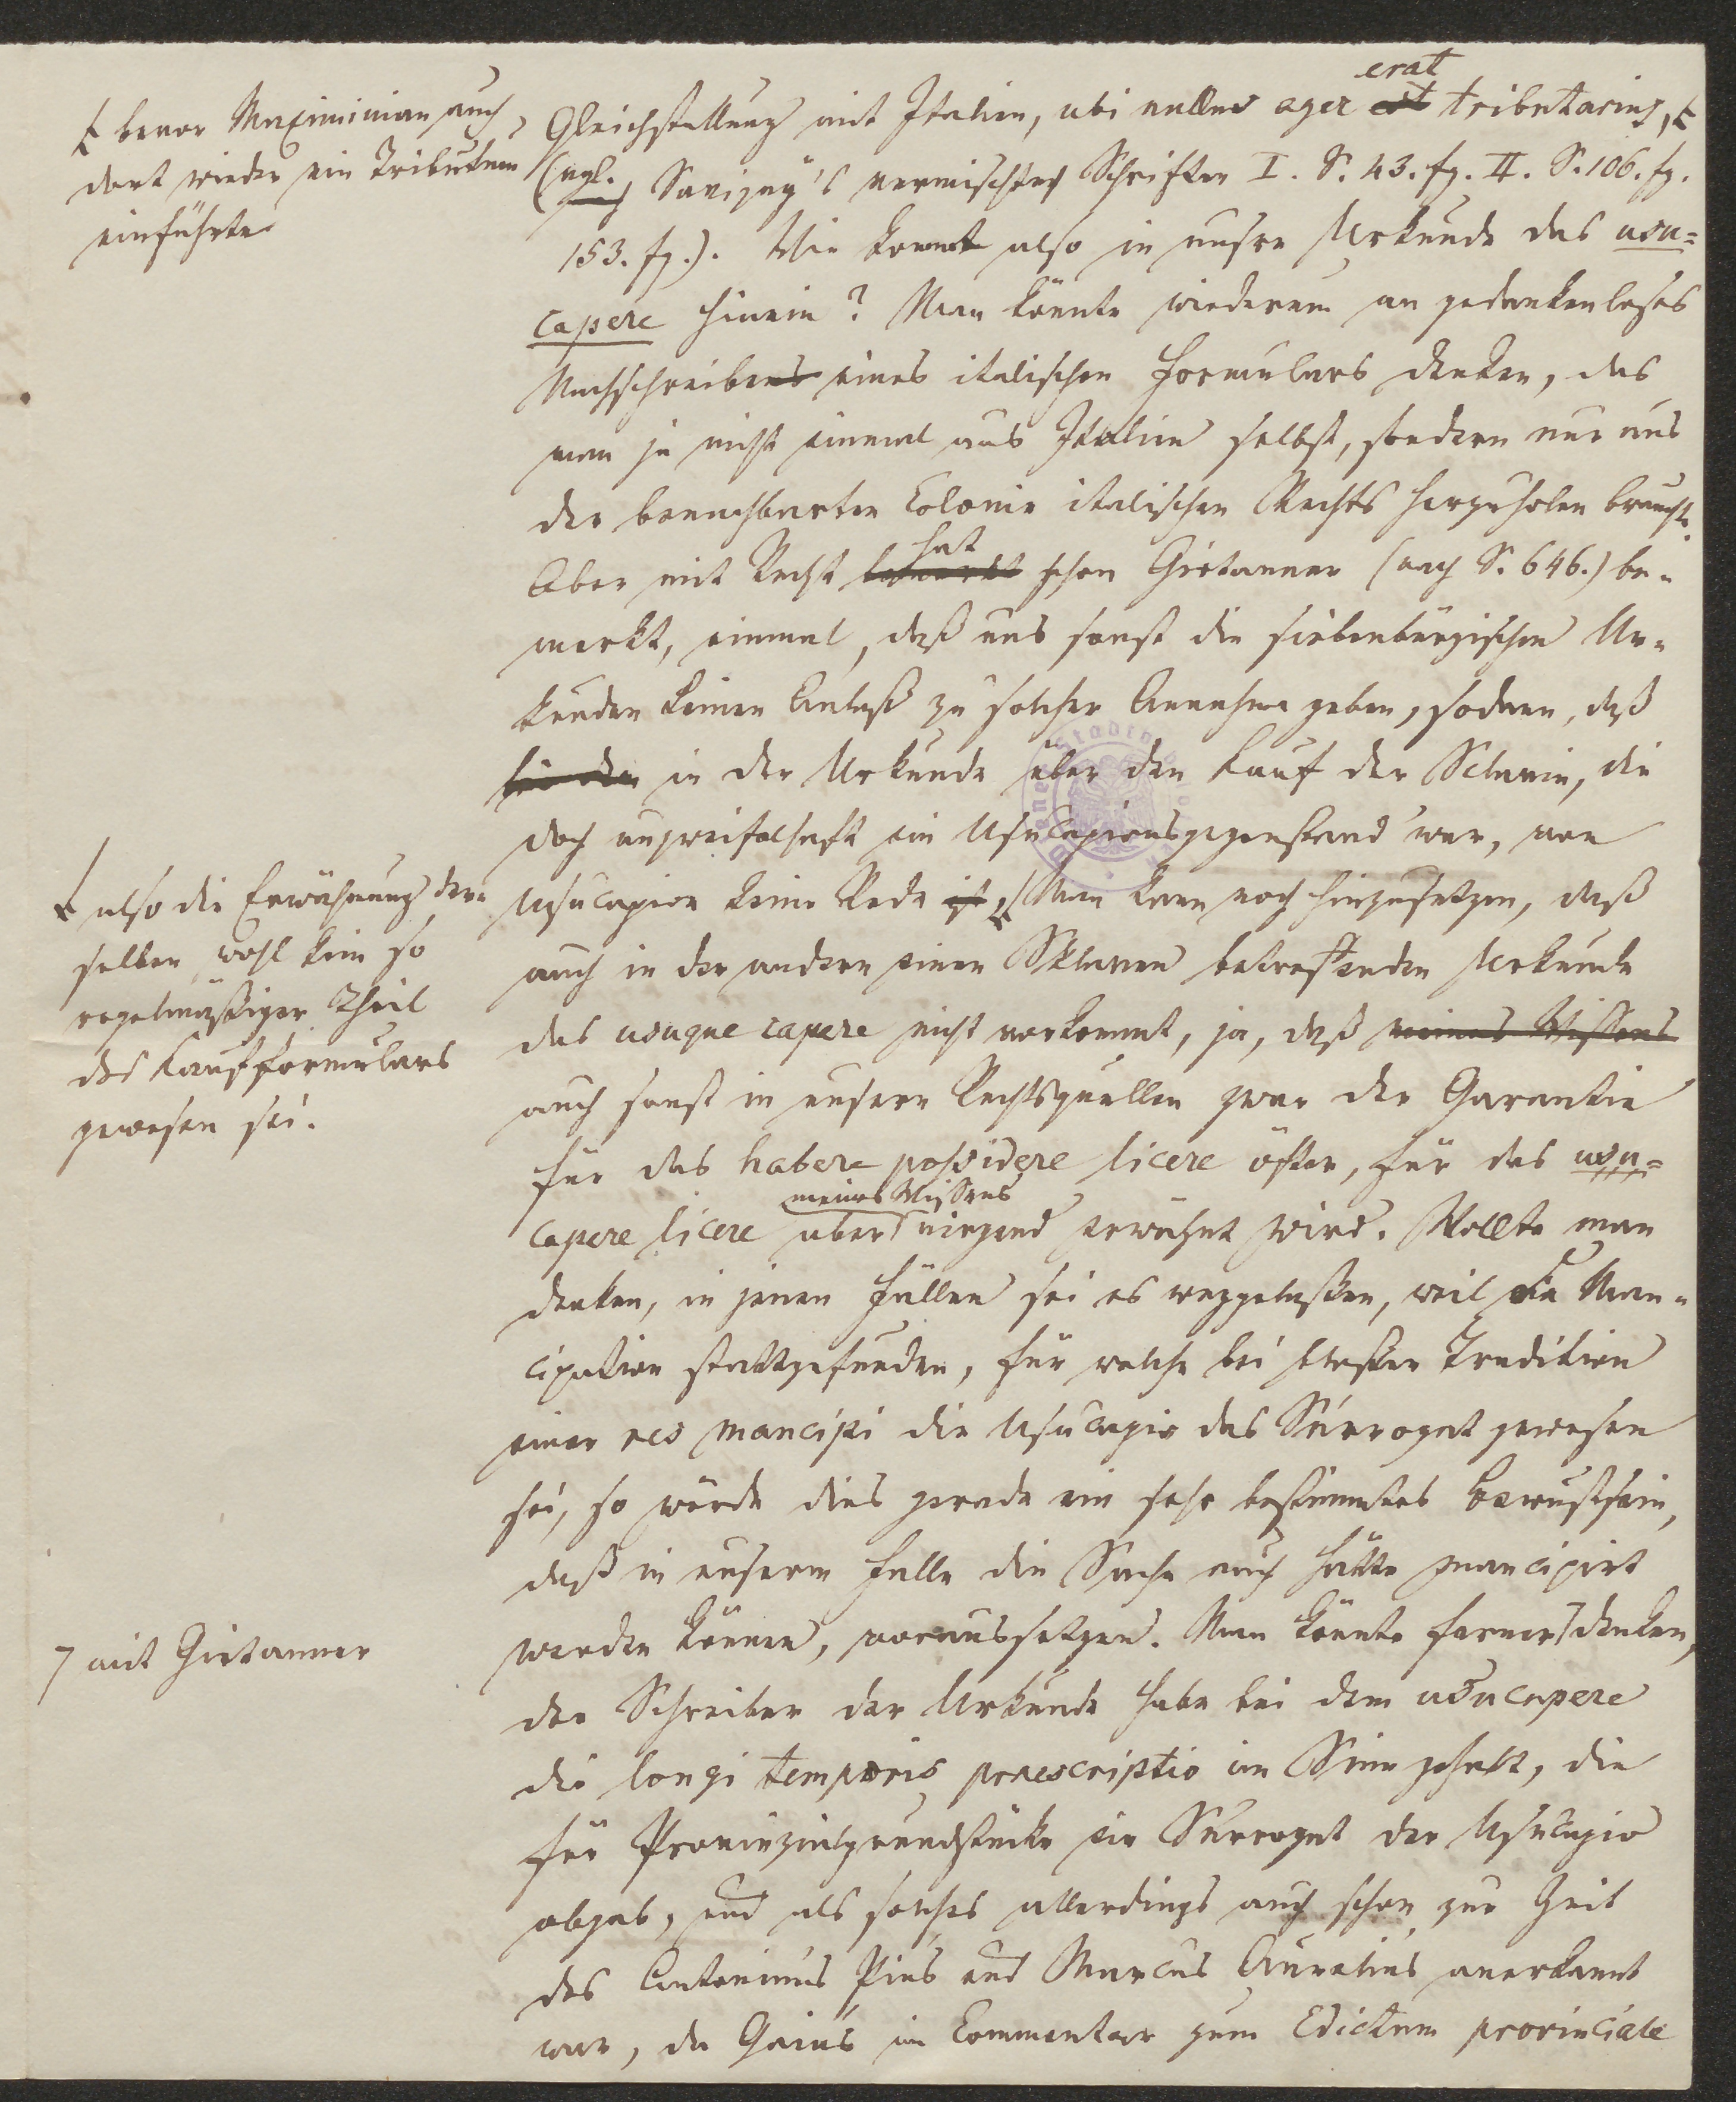 bevor Maximinian auch
dort wieder ein Tributum
einführte
erat
Gleichstellung mit Italien, ubi nullus ager est tributarius,
(vgl. Savigny's vermischte Schriften I. S. 43. fg. II. S. 106. fg.
153. fg.). Wie kommt also in unsre Urkunde das usu=
capere hinein? Man könnte wiederum an gedankenloses
Nachschreibens eines italischen Formulars denken, das
man ja nicht einmal aus Italien selbst, sondern nur aus
der benachbarten Colonie italischen Rechts herzuholen brauchte.
hat
Aber mit Recht bemerkt schon Girtanner (nach S. 646.) be=
merkt, einmal, daß uns sonst die siebenbürgischen Ur=
kunden keinen Anlaß zu solcher Annahme geben, sodann, daß
in der Urkunde über den Kauf der Sclavin, die
doch unzweifelhaft ein Usucapionsgegenstand war, von
Usucapion keine Rede ist, Man kann noch hinzusetzen, daß
also die Erwähnung der=
selben wohl kein so
regelmäßiger Theil
des Kaufformulars
gewesen sei.
auch in der andern einen Sklaven betreffenden Urkunde
das usuque capere nicht vorkommt, ja, daß meines Wissens
auch sonst in unsern Rechtsquellen zwar der Garantie
für das habere possidere licere öfter, für das usu=
meines Wissens
capere licere aber nirgend erwähnt wird. Wollte man
denken, in jenen Fällen sei es weggelassen, weil die Man=
cipation stattgefunden, für welche bei bloßer Tradition
einer res mancipi die Usucapio das Surrogat gewesen
sei, so würde dies gerade ein sehr bestimmtes Bewußtsein,
daß in unserm Falle die Sache auch hätte mancipirt
werden können, voraussetzen. Man könnte ferner denken,
mit Girtanner
der Schreiber der Urkunde habe bei dem usucapere
die longi temporis praescriptio im Sinn gehabt, die
für Provinzialgrundstücke ein Surrogat der Usucapio
abgab, und als solches allerdings auch schon zur Zeit
des Antoninus Pius und Marcus Aurelius anerkannt
war, da Gaius im Commentar zum Edictum provinciale